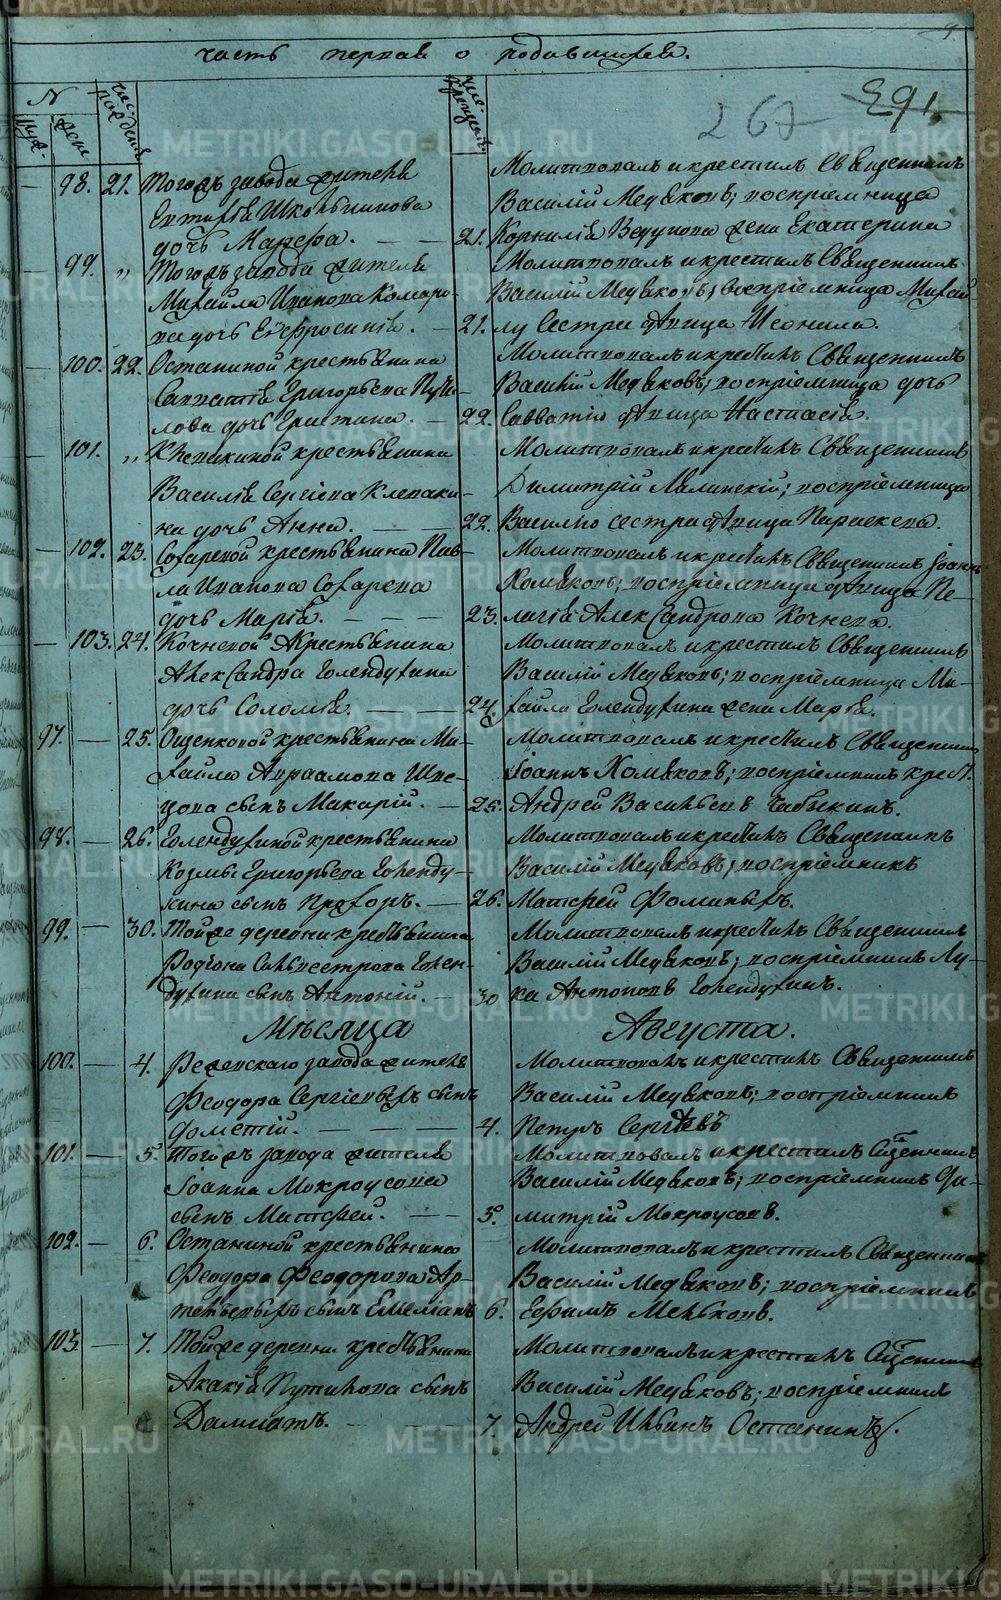 METRIKI.GASO-URAL.RU
часть первая о родившихся.
N
муж.
жен.
чис. рожден.
чис. крещен.
267
291
98. 21. Тогожъ завода жителя
Евтифія Школьникова
дочь Марѳа.
Молитвовалъ и крестилъ Священникъ
Василій Медяковъ; воспріемница
21. Корнилія Ведунова жена Екатерина
99. „ Тогожъ завода жителя
Михайла Иванова Комаро-
ва дочь Евфросинія.
Молитвовалъ и крестилъ Священникъ
Василій Медяковъ; воспріемница Михай
21. лу Сестра дѣвица Неонила.
100. 22. Останиной крестьянина
Савватія Григорьева Пути-
лова дочь Христина.
Молитвовалъ и крестилъ Священникъ
Василій Медяковъ; воспріемница дочь
22. Савватію дѣвица Настасія.
101. „ Клепакиной крестьянина
Василія Сергіева Клепаки-
на дочь Анна.
Молитвовалъ и крестилъ Священникъ
Димитрій Лялинскій; воспріемница
22. Василію сестра дѣвица Параскева.
102. 23. Сохаревой крестьянина Пав-
ла Иванова Сохарева
дочь Марія.
Молитвовалъ и крестилъ Священникъ Іоаннъ
Хомяковъ; воспріемница дѣвица Пе-
23. лагія Александрова Кочнева.
103. 24. Кочневой крестьянина
Александра Голендухина
дочь Соломія.
Молитвовалъ и крестилъ Священникъ
Василій Медяковъ; воспріемница Ми-
24. хайла Голендухина жена Марѳа.
97. 25. Ощепковой крестьянина Ми-
хайла Авраамова Шве-
цова сынъ Макарій.
Молитвовалъ и крестилъ Священникъ
Іоаннъ Хомяковъ; воспріемникъ крест.
25. Андрей Васильевъ Чабыкинъ.
98. 26. Голендухиной крестьянина
Козмы Григорьева Голенду-
хина сынъ Прохоръ.
Молитвовалъ и крестилъ Священникъ
Василій Медяковъ; воспріемникъ
26. Матѳей Фоминыхъ.
99. 30. Тойже деревни крестьянина
Родіона Сильвестрова Голен-
духина сынъ Антоній.
Молитвовалъ и крестилъ Священникъ
Василій Медяковъ; воспріемникъ Лу-
30 ка Антоновъ Голендухинъ.
Мѣсяца Августа.
100. 4. Режевскаго завода жителя
Феодора Сергіевыхъ сынъ
Дометій.
Молитвовалъ и крестилъ Священникъ
Василій Медяковъ; воспріемникъ
4. Петръ Сергѣевъ
101. 5. Тогожъ завода жителя
Іоанна Мокроусова
сынъ Матѳей.
Молитвовалъ и крестилъ Сщенникъ
Василій Медяковъ; воспріемникъ Ди-
5. митрій Мокроусовъ.
102. 6. Останиной крестьянина
Феодора Феодорова Ар-
тетьевыхъ сынъ Емеліанъ
Молитвовалъ и крестилъ Священникъ
Василій Медяковъ; воспріемникъ
6. Ефимъ Мельковъ.
103. 7. Тойже деревни крестьянина
Акакія Путилова сынъ
Далматъ.
Молитвовалъ и крестилъ Сщенникъ
Василій Медяковъ; воспріемникъ
7. Андрей Ильинъ Останинъ.
METRIKI.GASO-URAL.RU